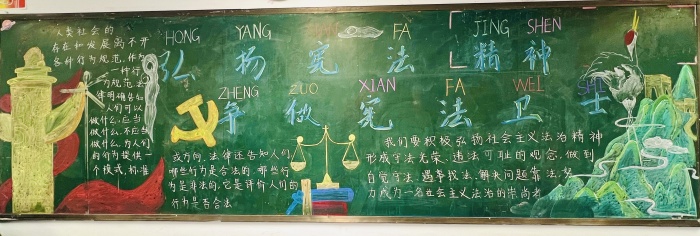 HONG YANG XIAN FA JING SHEN
弘扬宪法精神
ZHENG ZUO XIAN FA WEI SHI
争做宪法卫士
人类社会的
存在和发展离不开
各种行为规范,作为
一种行
为规范,法
律明确告知
人们可以
做什么,应当
做什么,不应当
做什么,为人们
的行为提供一
个模式,标准
或方向,法律还告知人们
哪些行为是合法的,哪些行
为是非法的,它是评价人们的
行为是否合法
我们要积极弘扬社会主义法治精神
形成守法光荣、违法可耻的观念,做到
自觉守法、遇事找法、解决问题靠法,努
力成为一名社会主义法治的崇尚者